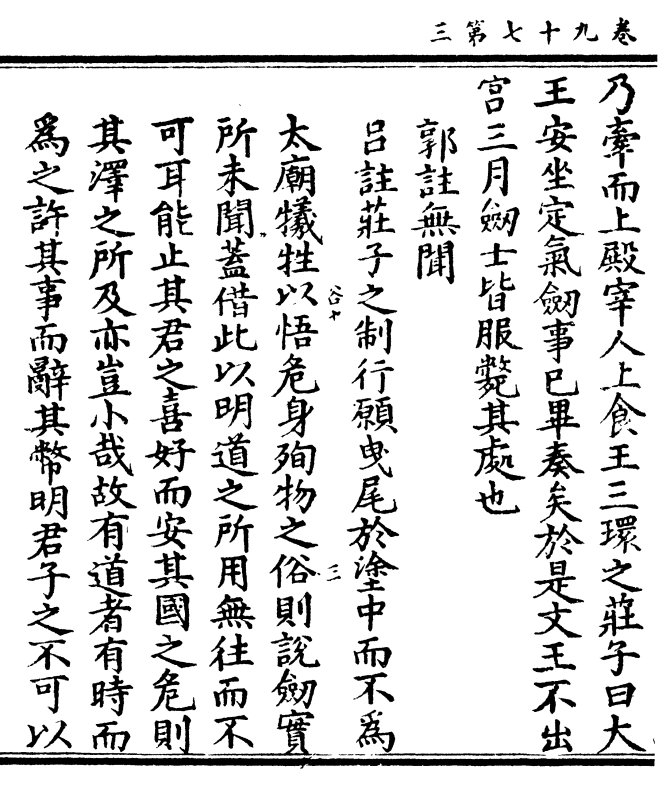 卷九十七第三
乃牽而上殿宰人上食王三環之莊子曰大
王安坐定氣劒事已畢奏矣於是文王不出
宫三月劒士皆服斃其處也
郭註無聞
呂註莊子之制行願曳尾於塗中而不爲
太廟犧牲以悟危身殉物之俗則說劒實
所未聞蓋借此以明道之所用無往而不
可耳能止其君之喜好而安其國之危則
其澤之所及亦豈小哉故有道者有時而
爲之許其事而辭其幣明君子之不可以